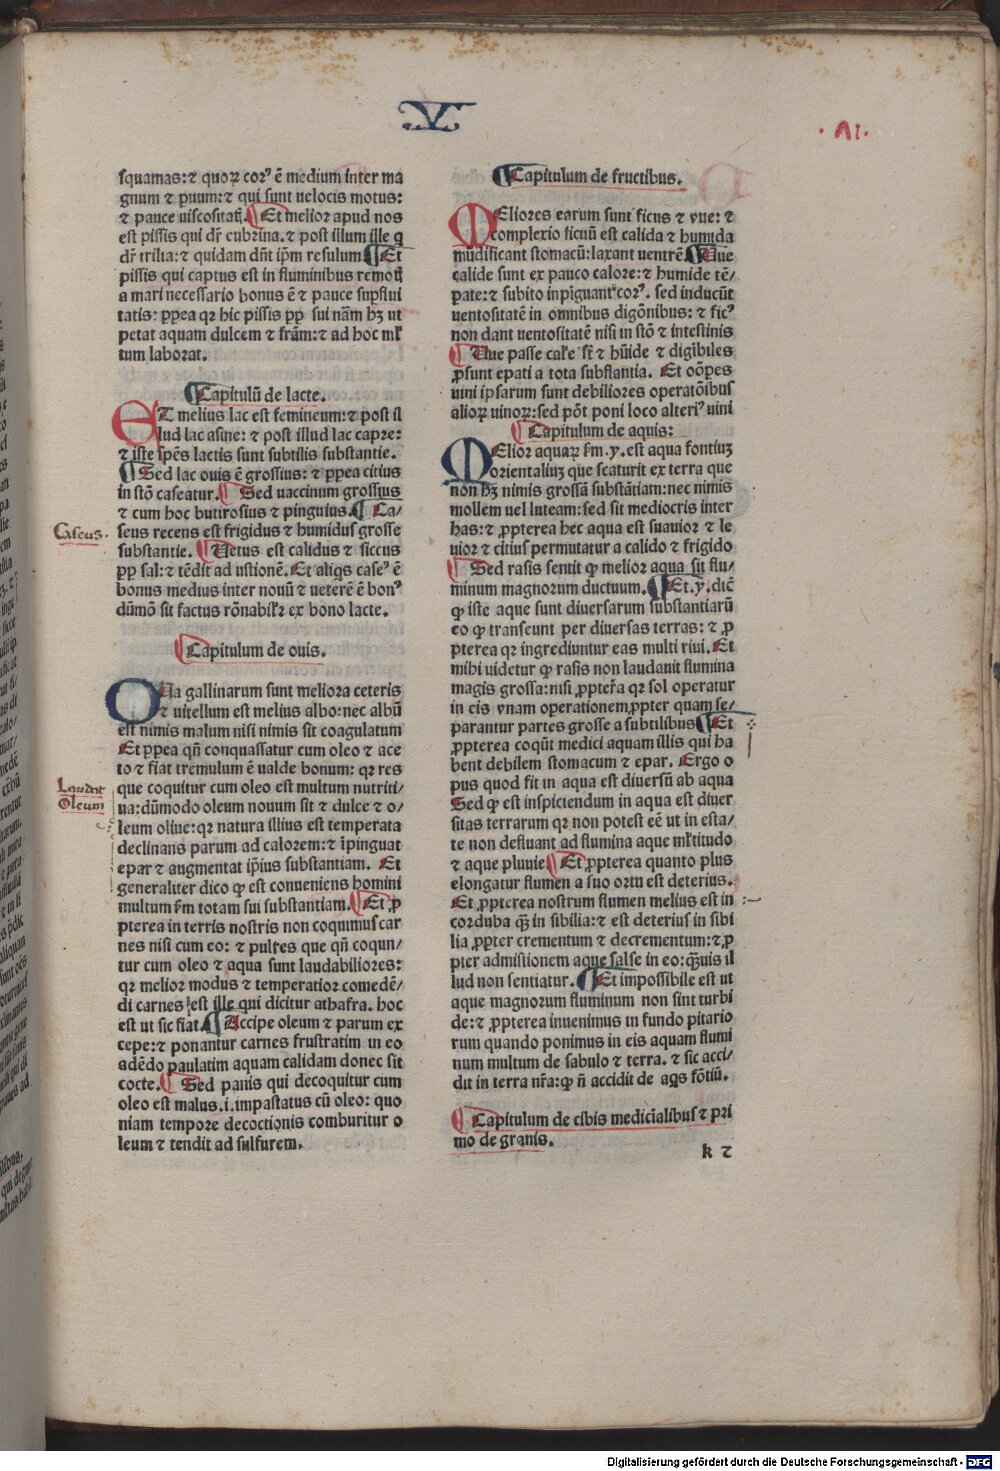 V
·VI·
squamas:⁊ quoꝝ corꝰ ē medium inter ma
gnum ⁊ ꝑuum:⁊ qui sunt uelocis motus:
⁊ pauce uiscositatꝭ. ¶ Et melior apud nos
est piscis qui dr̄ cubzina.⁊ post illum ille q
dr̄ trilia:⁊ quidam dn̄t ip̄m resulum ¶ Et
piscis qui captus est in fluminibus remotꝭ
a mari necessario bonus ē ⁊ pauce suꝑflui
tatis: ꝓpea qꝛ hic piscis ꝓp sui nām hꝫ ut
petat aquam dulcem ⁊ frām:⁊ ad hoc ml̄
tum laborat.
¶ Capitulū de lacte.
ET melius lac est femineum:⁊ post il
lud lac asine: ⁊ post illud lac capre:
⁊ iste sp̄es lactis sunt subtilis substantie.
¶ Sed lac ouis ē grossius: ⁊ ꝓpea citius
in stō caseatur. ¶ Sed uaccinum grossius
⁊ cum hoc butirosius ⁊ pinguius. ¶ Ca/
seus recens est frigidus ⁊ humidus grosse
substantie. ¶ Uetus est calidus ⁊ siccus
ꝓp sal:⁊ tēdit ad ustionē. Et aliqs caseꝰ ē
bonus medius inter nouū ⁊ ueterē ē bonꝰ
dūmō sit factus rōnabilr̄ ex bono lacte.
Caseus.
¶ Capitulum de ouis.
OUa gallinarum sunt meliora ceteris
⁊ uitellum est melius albo:nec albū
est nimis malum nisi nimis sit coagulatum
Et ꝓpea qn̄ conquassatur cum oleo ⁊ ace
to ⁊ fiat tremulum ē ualde bonum: qꝛ res
que coquitur cum oleo est multum nutriti/
ua:dūmodo oleum nouum sit ⁊ dulce ⁊ o/
leum oliue:qꝛ natura illius est temperata
declinans parum ad calorem:⁊ īpinguat
epar ⁊ augmentat ip̄ius substantiam. Et
generaliter dico qꝙ est conueniens homini
multum ẜm totam sui substantiam. ¶ Et ꝓ
pterea in terris nostris non coquimus car
nes nisi cum eo: ⁊ pultes que qn̄ coqun/
tur cum oleo ⁊ aqua sunt laudabiliores:
qꝛ melior modus ⁊ temperatior comedē/
di carnes est ille qui dicitur athafra. hoc
est ut sic fiat. ¶ Accipe oleum ⁊ parum ex
cepe:⁊ ponantur carnes frustratim in eo
adēdo paulatim aquam calidam donec sit
cocte. ¶ Sed panis qui decoquitur cum
oleo est malus.i.impastatus cū oleo: quo
niam tempore decoctionis comburitur o
leum ⁊ tendit ad sulfurem.
Laudat
Oleum
¶ Capitulum de fructibus.
MEliores earum sunt ficus ⁊ vue: ⁊
complexio ficuū est calida ⁊ humida
mūdificant stomacū:laxant uentrē ¶ Uue
calide sunt ex pauco calore:⁊ humide tē/
ꝑate:⁊ subito inpīguant corꝰ. sed inducūt
uentositatē in omnibus digōnibus: ⁊ ficꝰ
non dant uentositatē nisi in stō ⁊ intestinis
¶ Uue passe cal̄e sr̄ ⁊ hūide ⁊ digībiles
ꝓsunt epati a tota substantia. Et oōpes
uini ipsarum sunt debiliores operatōibus
alioꝝ uinoꝝ:sed pōt poni loco alteriꝰ uini
¶ Capitulum de aquis:
MElior aquaꝝ ẜm .y. est aqua fontiuꝫ
orientaliuꝫ que scaturit ex terra que
non hꝫ nimis grossā substātiam:nec nimis
mollem uel luteam:sed sit mediocris inter
has:⁊ ꝓpterea hec aqua est suauior ⁊ le
uior ⁊ citius permutatur a calido ⁊ frigido
¶ Sed rasis sentit ꝙ melior aqua sit flu/
minum magnorum ductuum. ¶ Et .y. dicē
ꝙ iste aque sunt diuersarum substantiarū
eo ꝙ transeunt per diuersas terras: ⁊ ꝓ
pterea qꝛ ingrediuntur eas multi riui. Et
mihi uidetur ꝙ rasis non laudauit flumina
magis grossa:nisi ꝓpterꝰa qꝛ sol operatur
in eis vnam operationem,ꝓpter quam se/
parantur partes grosse a subtilibus ¶ Et
ꝓpterea coqūt medici aquam illis qui ha
bent debilem stomacum ⁊ epar. Ergo o
pus quod fit in aqua est diuersū ab aqua
Sed ꝙ est inspiciendum in aqua est diuer
sitas terrarum qꝛ non potest eē ut in esta/
te non defluant ad flumina aque ml̄titudo
⁊ aque pluuie ¶ Et ꝓpterea quanto plus
elongatur flumen a suo ortu est deterius.
Et ꝓpterea nostrum flumen melius est in
corduba q̄ꝫ in sibilia:⁊ est deterius in sibi
lia ꝓpter crementum ⁊ decrementum:⁊ ꝓ
pter admistionem aque salse in eo:q̄ꝫuis il
lud non sentiatur. ¶ Et impossibile est ut
aque magnorum fluminum non sint turbi
de:⁊ ꝓpterea inuenimus in fundo pitario
rum quando ponimus in eis aquam flumi
num multum de sabulo ⁊ terra. ⁊ sic acci/
dit in terra nr̄a:ꝙ n̄ accidit de aqs fōtiū.
¶ Capitulum de cibis medicialibus ⁊ pri
mo de granis.
k 2
Digitalisierung gefördert durch die Deutsche Forschungsgemeinschaft - DFG